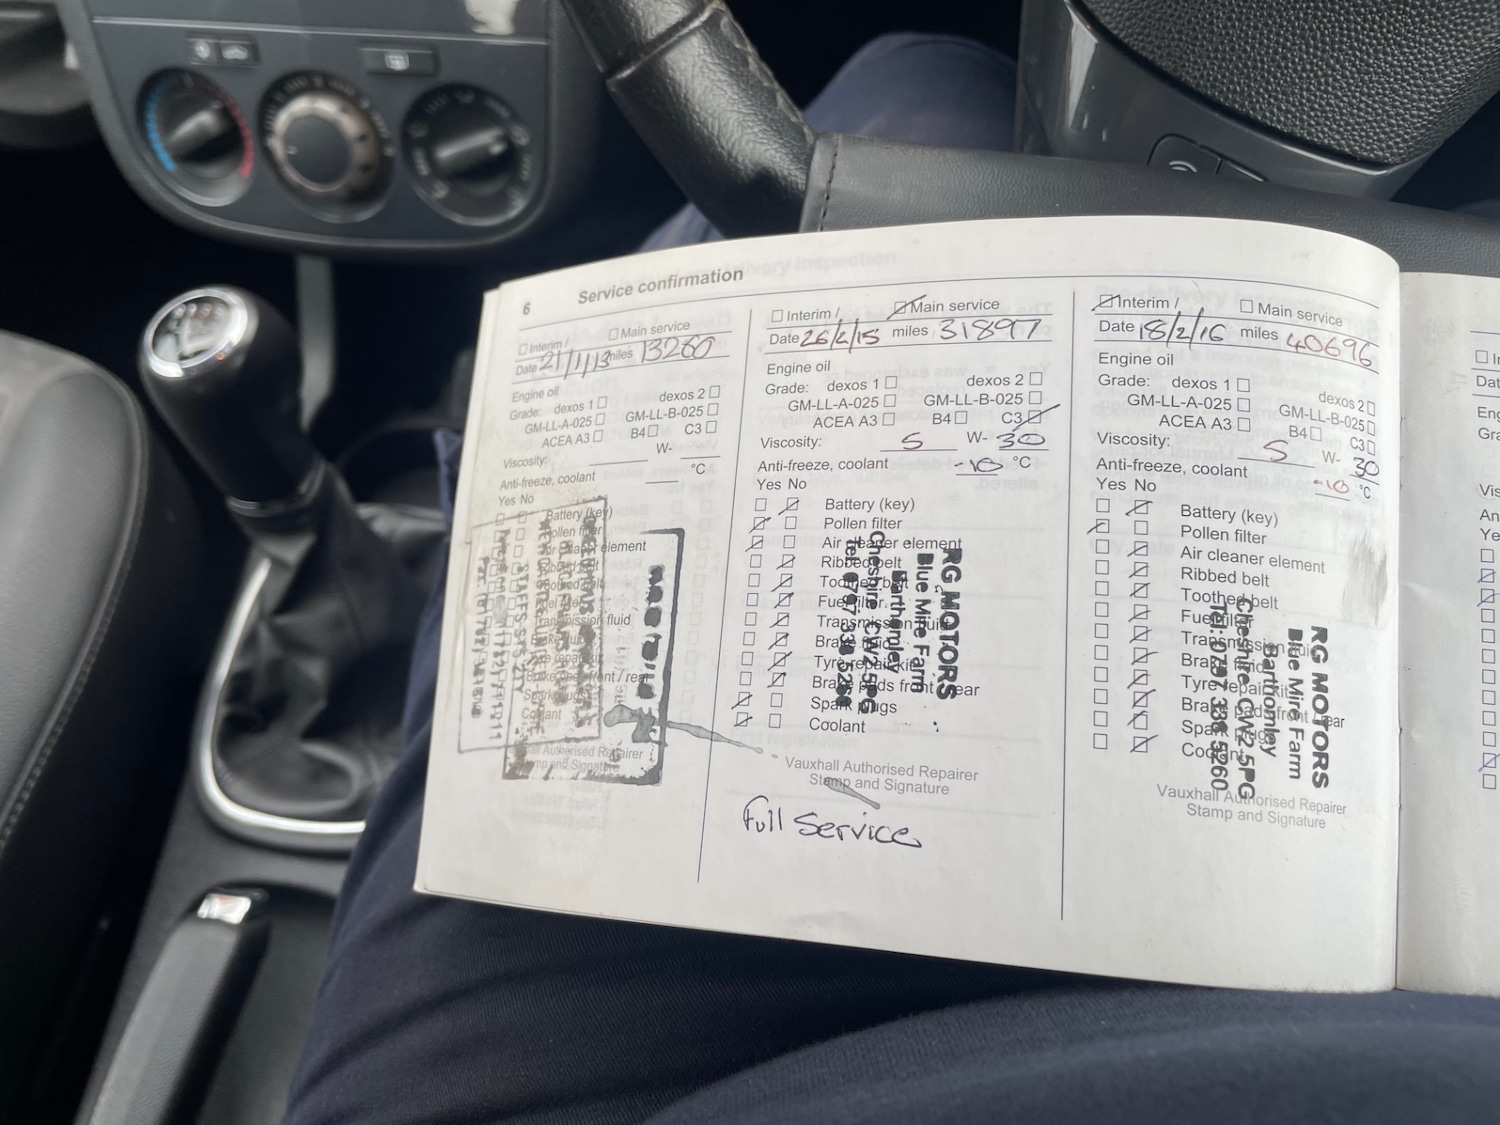 6
Service confirmation
Interim /
Main service
Date 21/1/13 miles 13260
Engine oil
Grade: dexos 1 dexos 2
GM-LL-A-025 GM-LL-B-025
ACEA A3 B4 C3
Viscosity: W-
Anti-freeze, coolant °C
Yes No
Battery (key)
Vauxhall Authorised Repairer
Stamp and Signature
Interim / Main service
Date 26/2/15 miles 31897
Engine oil
Grade: dexos 1 dexos 2
GM-LL-A-025 GM-LL-B-025
ACEA A3 B4 C3
Viscosity: 5 W- 30
Anti-freeze, coolant -10 °C
Yes No
Battery (key)
Pollen filter
Air cleaner element
Ribbed belt
Toothed belt
Fuel filter
Transmission fluid
Brake fluid
Tyre repair kit
Brake pads front / rear
Spark plugs
Coolant
RG MOTORS
Blue Mire Farm
Barthomley
Cheshire CW2 5PG
Vauxhall Authorised Repairer
Stamp and Signature
Full Service
Interim / Main service
Date 18/2/16 miles 40696
Engine oil
Grade: dexos 1 dexos 2
GM-LL-A-025 GM-LL-B-025
ACEA A3 B4 C3
Viscosity: 5 W- 30
Anti-freeze, coolant -10 °C
Yes No
Battery (key)
Pollen filter
Air cleaner element
Ribbed belt
Toothed belt
Fuel filter
Transmission fluid
Brake fluid
Tyre repair kit
Brake pads front / rear
Spark plugs
Coolant
RG MOTORS
Blue Mire Farm
Barthomley
Cheshire CW2 5PG
Vauxhall Authorised Repairer
Stamp and Signature